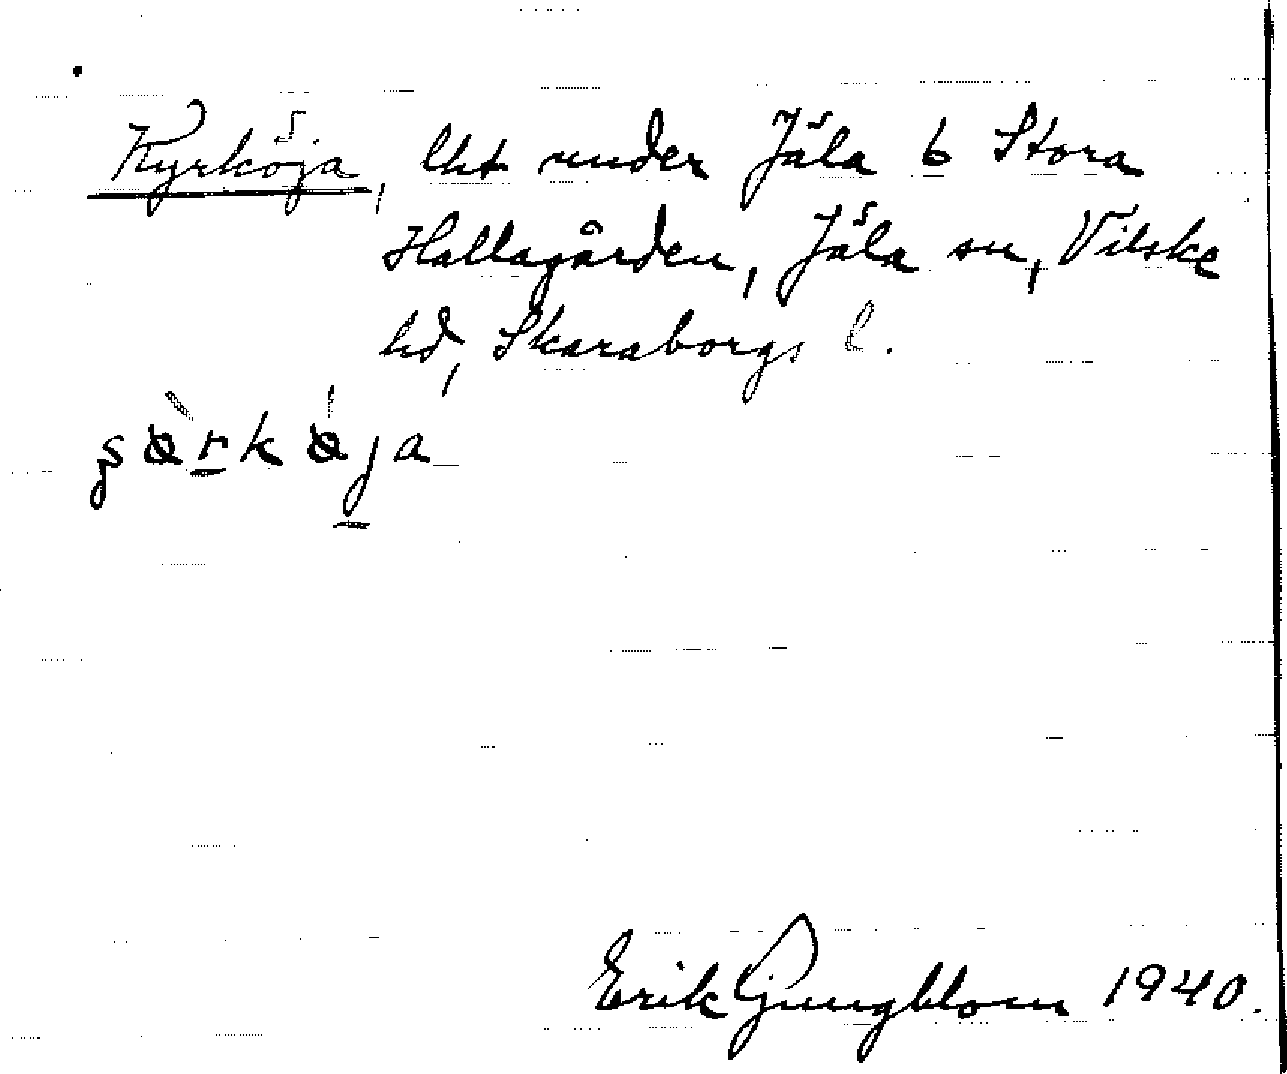 Kyrköja, lht under Jäla 6 Stora
Hallagården, Jäla sn, Vilske
hd, Skaraborgs l.
Erik Ljungblom 1940.